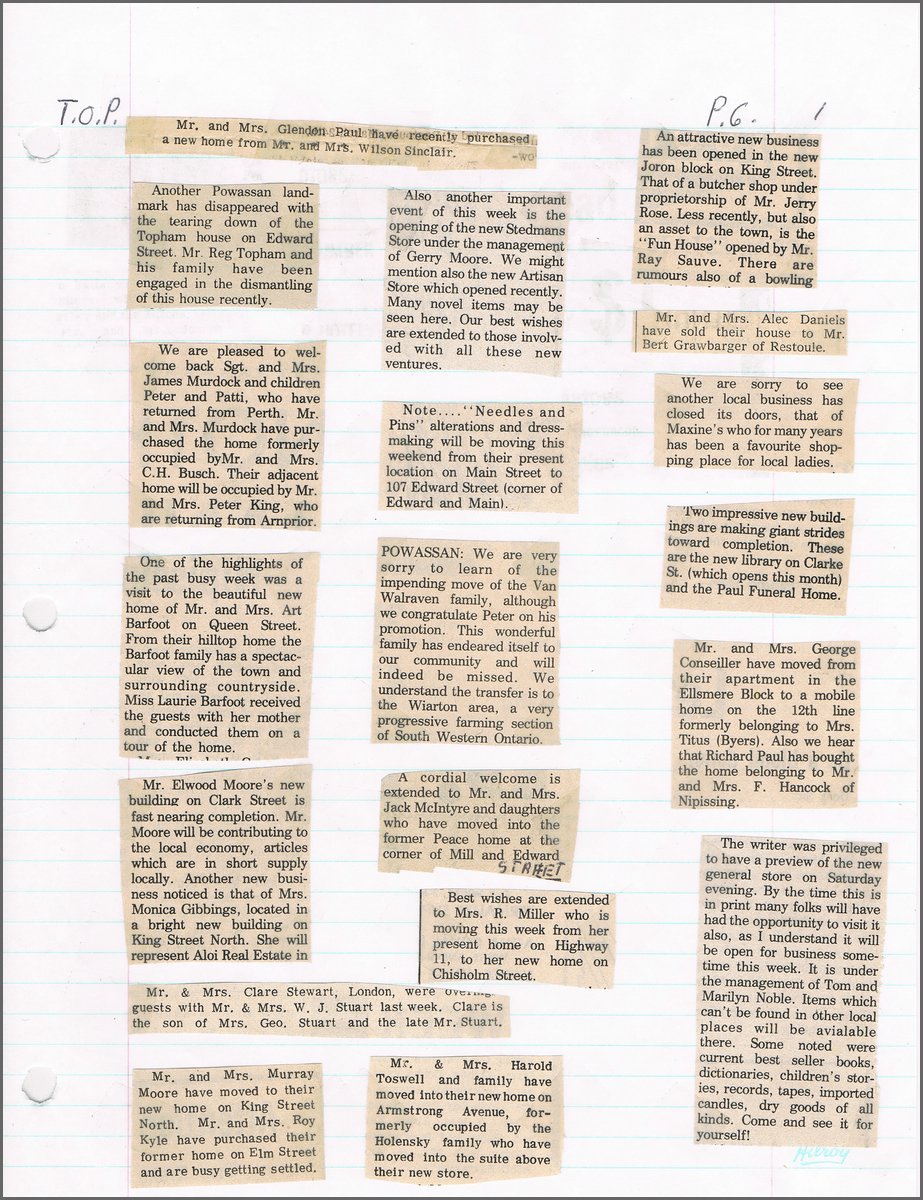 T.O.P.
P.G. 1
Mr. and Mrs. Glendon Paul have recently purchased
a new home from Mr. and Mrs. Wilson Sinclair.
Another Powassan land-
mark has disappeared with
the tearing down of the
Topham house on Edward
Street. Mr. Reg Topham and
his family have been
engaged in the dismantling
of this house recently.
We are pleased to wel-
come back Sgt. and Mrs.
James Murdock and children
Peter and Patti, who have
returned from Perth. Mr.
and Mrs. Murdock have pur-
chased the home formerly
occupied byMr. and Mrs.
C.H. Busch. Their adjacent
home will be occupied by Mr.
and Mrs. Peter King, who
are returning from Arnprior.
One of the highlights of
the past busy week was a
visit to the beautiful new
home of Mr. and Mrs. Art
Barfoot on Queen Street.
From their hilltop home the
Barfoot family has a spectac-
ular view of the town and
surrounding countryside.
Miss Laurie Barfoot received
the guests with her mother
and conducted them on a
tour of the home.
Mr. Elwood Moore's new
building on Clark Street is
fast nearing completion. Mr.
Moore will be contributing to
the local economy, articles
which are in short supply
locally. Another new busi-
ness noticed is that of Mrs.
Monica Gibbings, located in
a bright new building on
King Street North. She will
represent Aloi Real Estate in
Mr. & Mrs. Clare Stewart, London, were
guests with Mr. & Mrs. W. J. Stuart last week. Clare is
the son of Mrs. Geo. Stuart and the late Mr. Stuart.
Mr. and Mrs. Murray
Moore have moved to their
new home on King Street
North. Mr. and Mrs. Roy
Kyle have purchased their
former home on Elm Street
and are busy getting settled.
Also another important
event of this week is the
opening of the new Stedmans
Store under the management
of Gerry Moore. We might
mention also the new Artisan
Store which opened recently.
Many novel items may be
seen here. Our best wishes
are extended to those involv-
ed with all these new
ventures.
Note...."Needles and
Pins" alterations and dress-
making will be moving this
weekend from their present
location on Main Street to
107 Edward Street (corner of
Edward and Main).
POWASSAN: We are very
sorry to learn of the
impending move of the Van
Walraven family, although
we congratulate Peter on his
promotion. This wonderful
family has endeared itself to
our community and will
indeed be missed. We
understand the transfer is to
the Wiarton area, a very
progressive farming section
of South Western Ontario.
A cordial welcome is
extended to Mr. and Mrs.
Jack McIntyre and daughters
who have moved into the
former Peace home at the
corner of Mill and Edward
STREET
Best wishes are extended
to Mrs. R. Miller who is
moving this week from her
present home on Highway
11, to her new home on
Chisholm Street.
Mr. & Mrs. Harold
Toswell and family have
moved into their new home on
Armstrong Avenue, for-
merly occupied by the
Holensky family who have
moved into the suite above
their new store.
An attractive new business
has been opened in the new
Joron block on King Street.
That of a butcher shop under
proprietorship of Mr. Jerry
Rose. Less recently, but also
an asset to the town, is the
"Fun House" opened by Mr.
Ray Sauve. There are
rumours also of a bowling
Mr. and Mrs. Alec Daniels
have sold their house to Mr.
Bert Grawbarger of Restoule.
We are sorry to see
another local business has
closed its doors, that of
Maxine's who for many years
has been a favourite shop-
ping place for local ladies.
Two impressive new build-
ings are making giant strides
toward completion. These
are the new library on Clarke
St. (which opens this month)
and the Paul Funeral Home.
Mr. and Mrs. George
Conseiller have moved from
their apartment in the
Ellsmere Block to a mobile
home on the 12th line
formerly belonging to Mrs.
Titus (Byers). Also we hear
that Richard Paul has bought
the home belonging to Mr.
and Mrs. F. Hancock of
Nipissing.
The writer was privileged
to have a preview of the new
general store on Saturday
evening. By the time this is
in print many folks will have
had the opportunity to visit it
also, as I understand it will
be open for business some-
time this week. It is under
the management of Tom and
Marilyn Noble. Items which
can't be found in other local
places will be avialable
there. Some noted were
current best seller books,
dictionaries, children's stor-
ies, records, tapes, imported
candles, dry goods of all
kinds. Come and see it for
yourself!
Hilroy